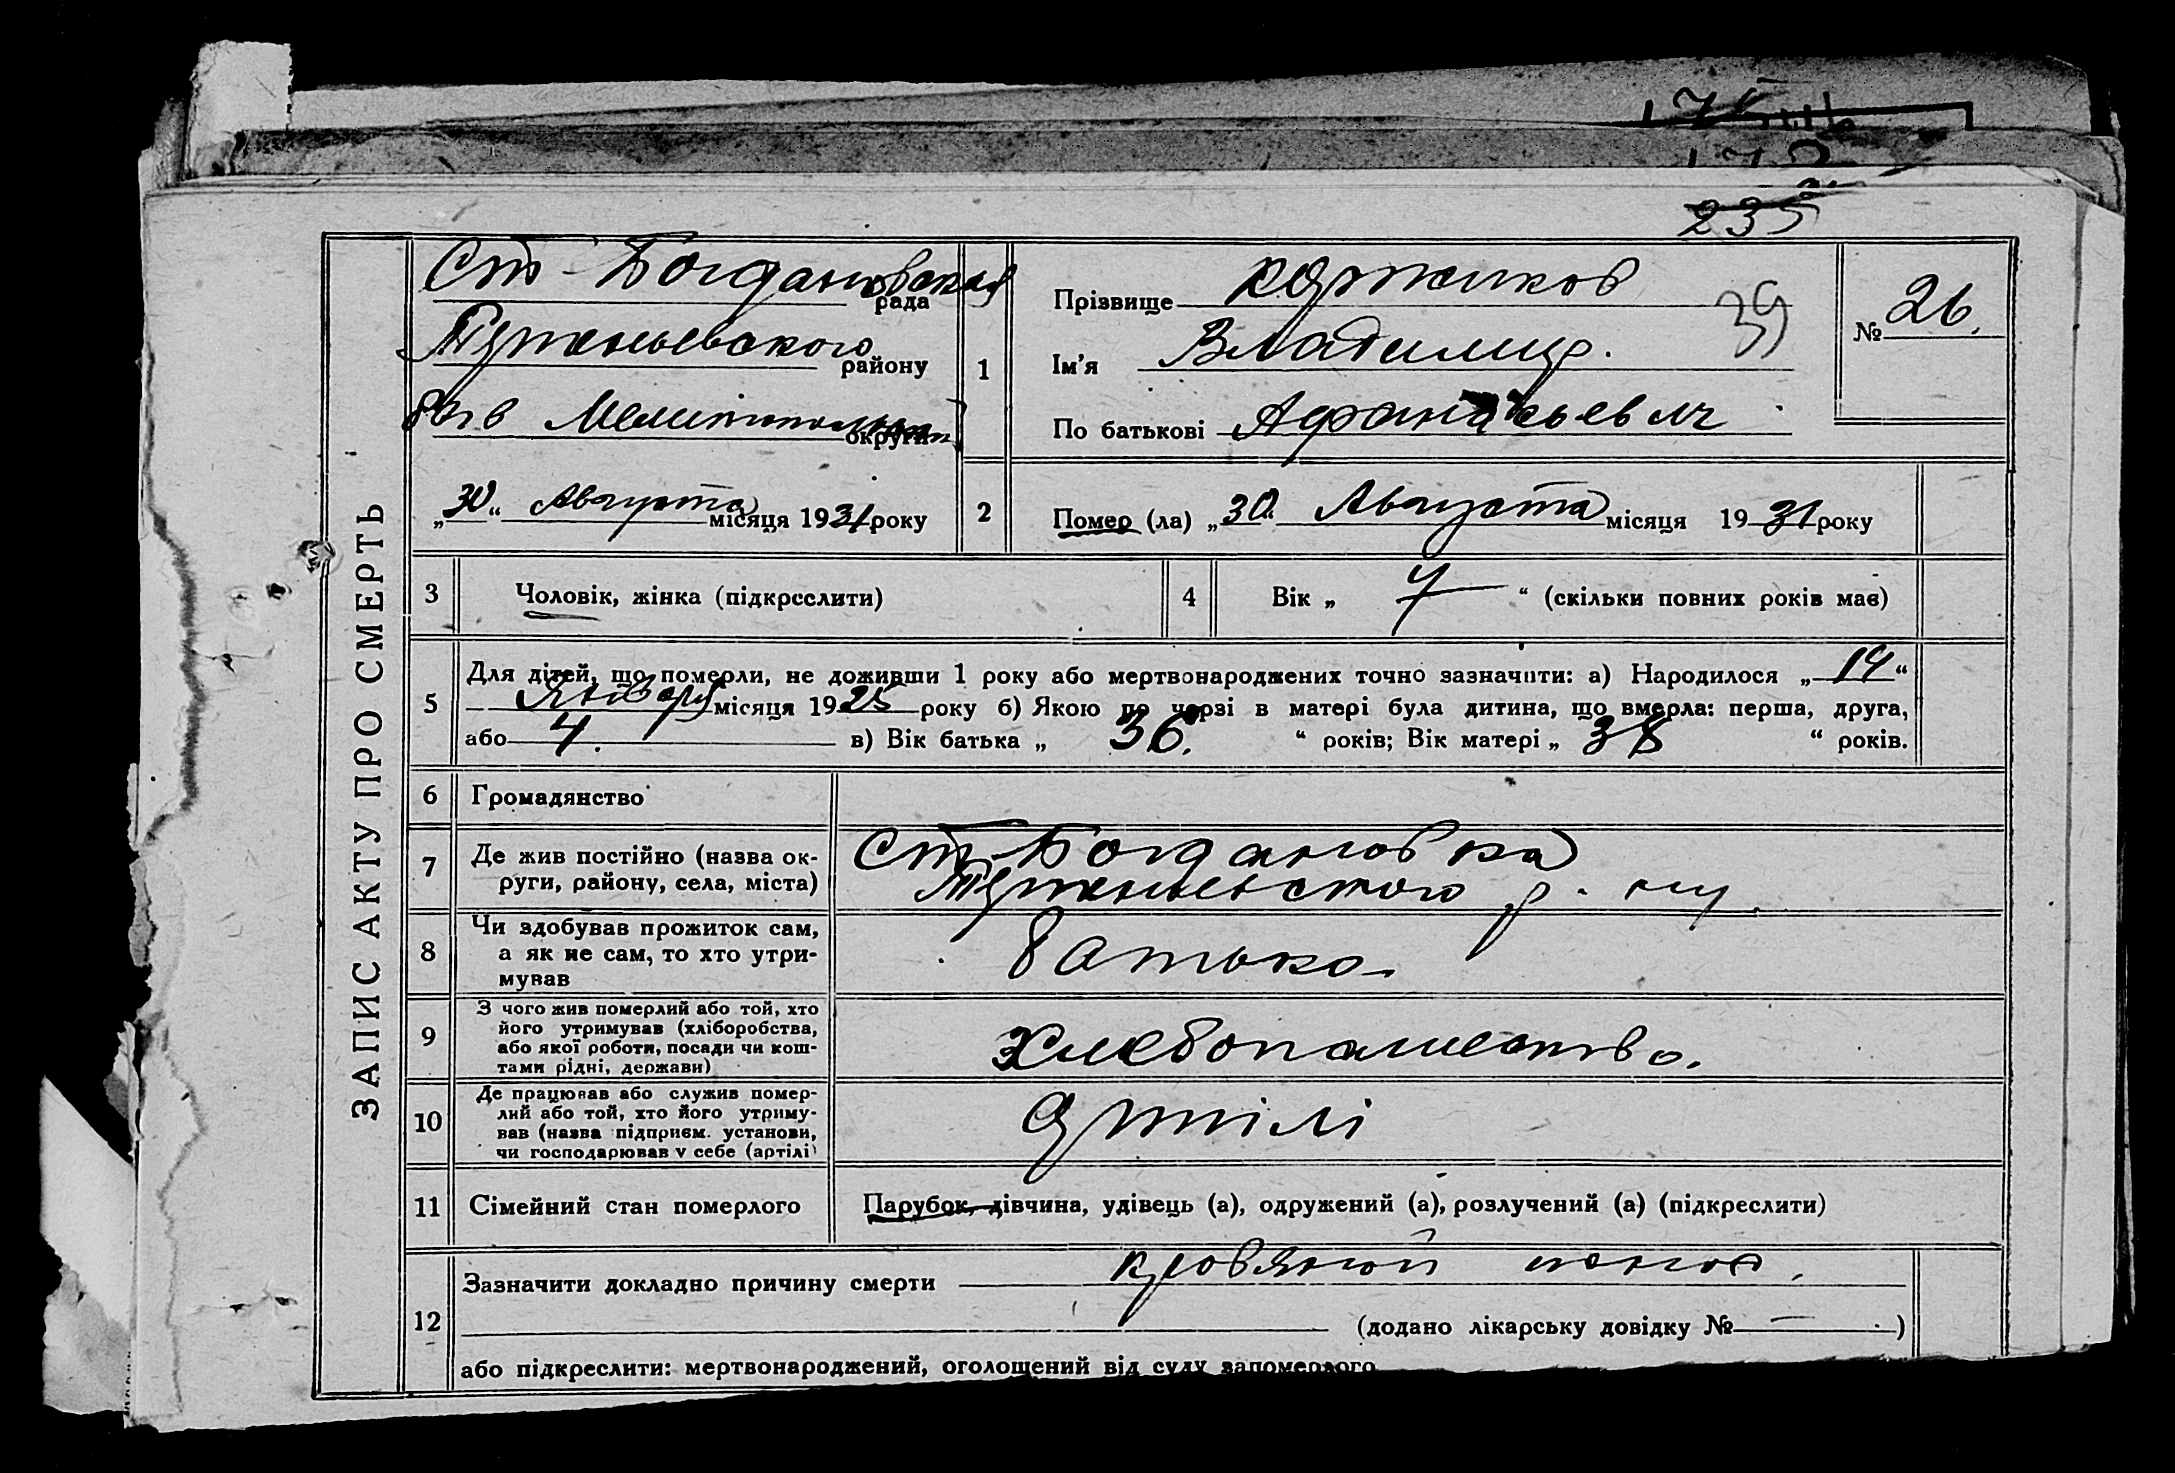 235
ЗАПИС АКТУ ПРО СМЕРТЬ
Ст-Богдановская рада
району
бувш Мелитопольск округи
„30“ Августа місяця 1931 року
1
Прізвище Коржиков
Ім’я Владимир.
По батькові Афанасьевич
39
№ 26.
2
Помер (ла) „30“ Августа місяця 1931 року
3 Чоловік, жінка (підкреслити)
4 Вік „ 7 “ (скільки повних років має)
5
Для дітей, що померли, не доживши 1 року або мертвонароджених точно зазначити: а) Народилося „ 14 “
Января місяця 1925 року б) Якою по черзі в матері була дитина, що вмерла: перша, друга,
або 4. в) Вік батька „ 36. “ років; Вік матері „ 38 “ років.
6 Громадянство
7 Де жив постійно (назва ок-
руги, району, села, міста)
Ст-Богдановка
р-ну
8 Чи здобував прожиток сам,
а як не сам, то хто утри-
мував
батько.
9 З чого жив померлий або той, хто
його утримував (хліборобства,
або якої роботи, посади чи кош-
тами рідні, держави)
Хлебопашество.
10 Де працював або служив помер-
лий або той, хто його утриму-
вав (назва підприєм. установи,
чи господарював у себе (артілі)
Артілі
11 Сімейний стан померлого
Парубок, дівчина, удівець (а), одружений (а), розлучений (а) (підкреслити)
12
Зазначити докладно причину смерти кров’яний понос.
(додано лікарську довідку № — )
або підкреслити: мертвонароджений, оголошений від суду запомерлого